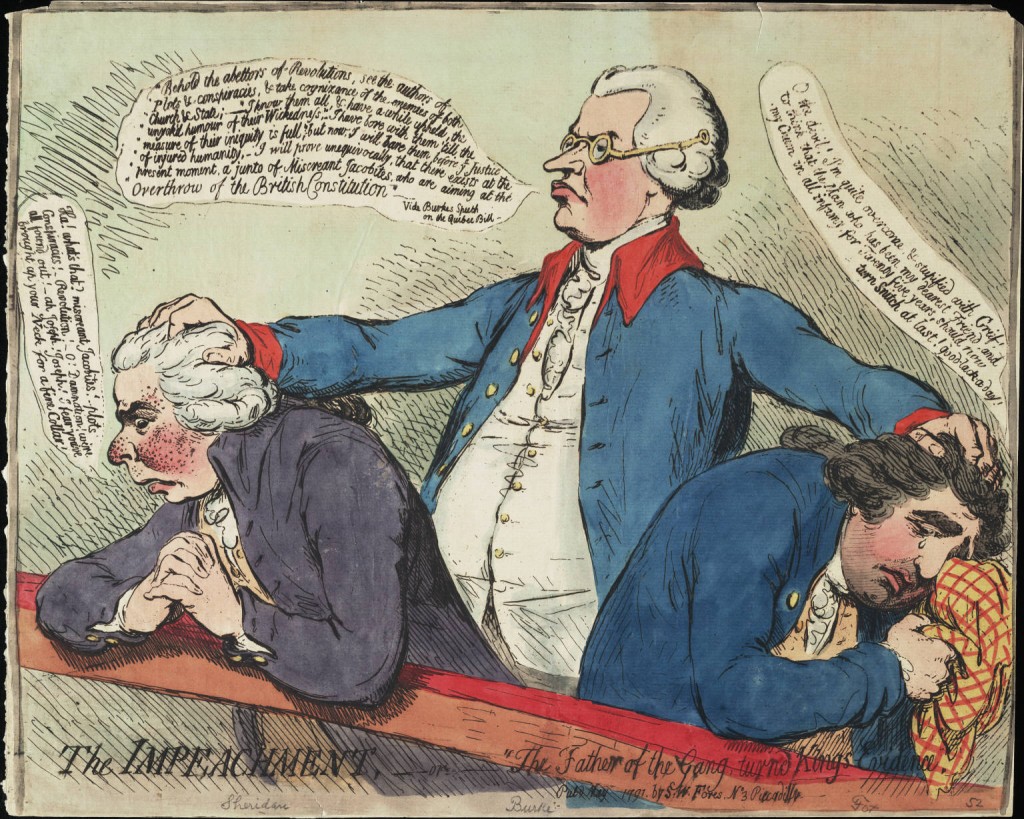 "Behold the abettors of Revolutions, see the authors of
Plots & conspiracies, & take cognizance of the enemies of both
Church & State; — "I know them all, & have a while upheld, the
unyok'd humour of their Wickedness;— I have bore with them till the
measure of their iniquity is full; but now, I will have them before ye Justice
of injured humanity, — I will prove unequivocally, that there exists at the
present moment, a junto of Miscreant Jacobites, who are aiming at the
Overthrow of the British Constitution"
Vide Burkes Speech
on the Quebec Bill —
O the devil! I'm quite overcome & stupified with Grief
to think that the Man who has been my dearest Friend and
my Chum in all Infamy for Twenty five years, should now
turn Snitch at last! good-lack-a-day!
Ha! what's that? miscreant Jacobites! plots,
Conspiracies! Revolution — O! Damnation, we're
all found out! — ah Joseph! Joseph! I fear you've
brought up your Neck for a fine Collar,
The IMPEACHMENT, — or — "The Father of the Gang turnd Kings Evidence"
Pubd May 1791. by S. W. Fores. No 3 Piccadilly
Sheridan
Burke
Fox
52